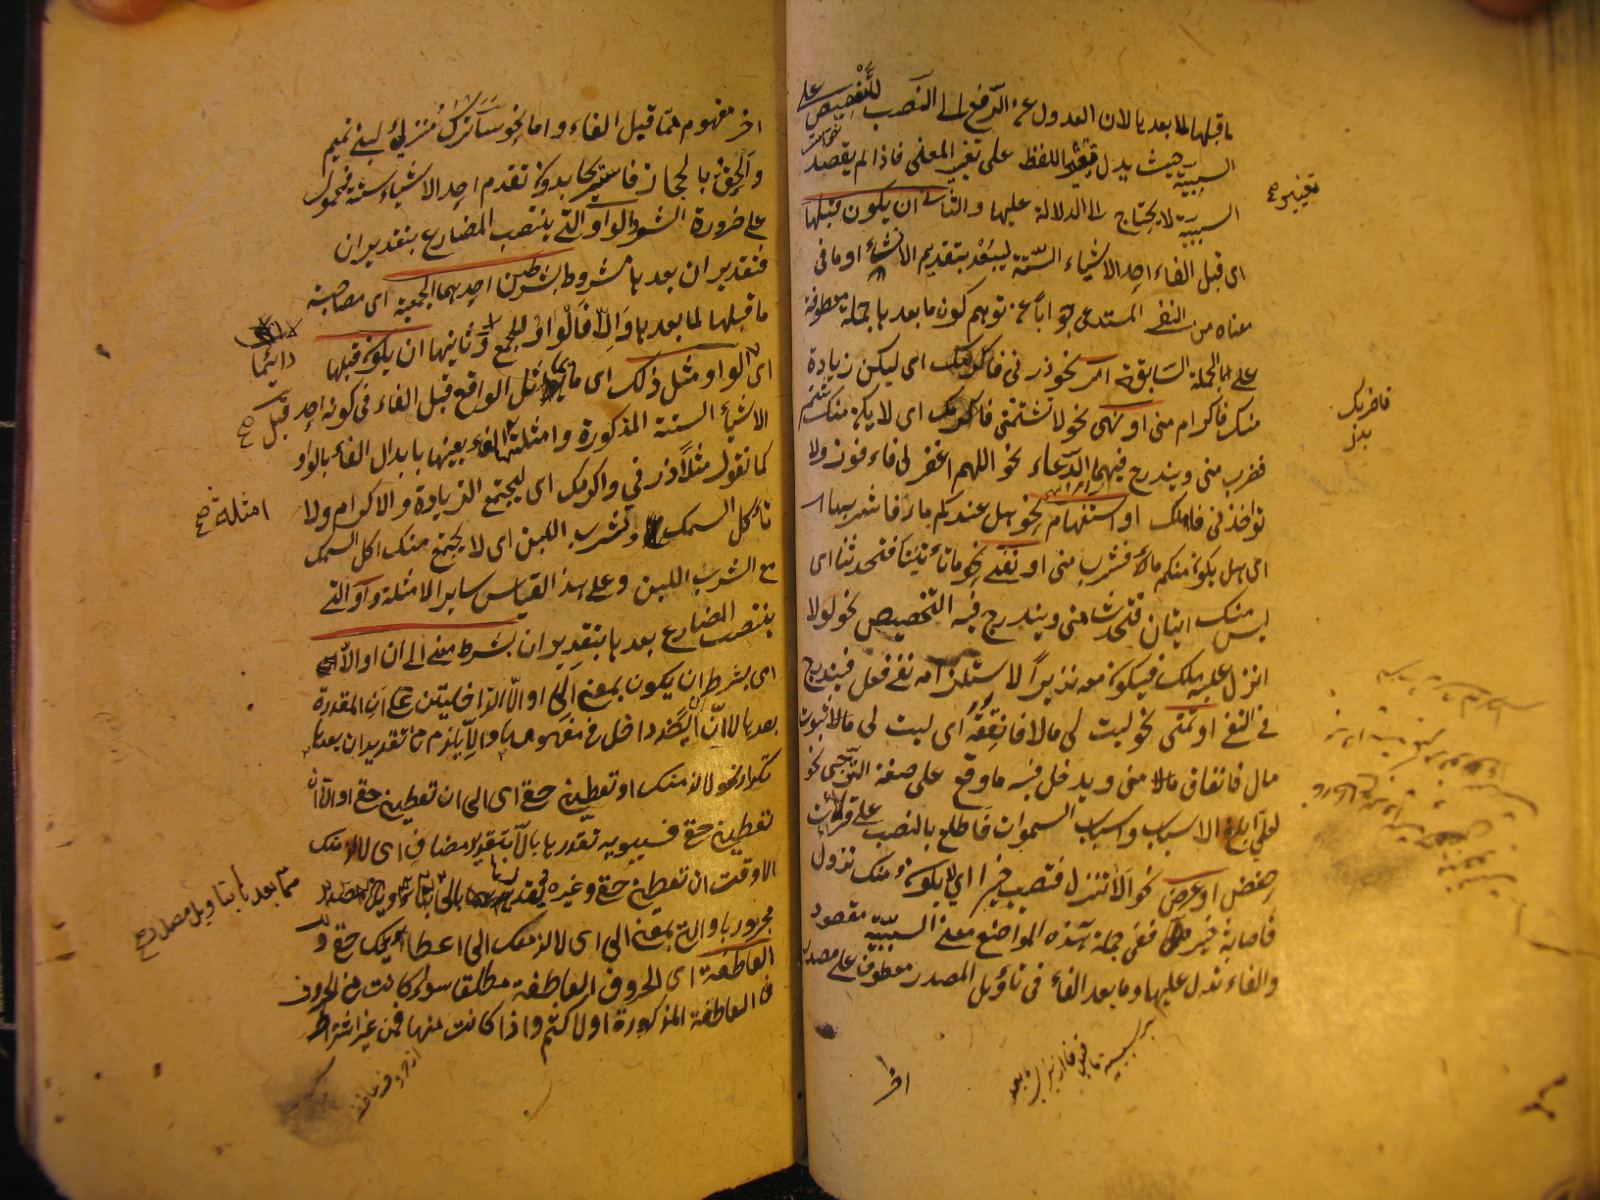 ما قبلها لما بعدها لان العدول عن الرفع الى النصب للتنصيص على
السببية حيث يدل تغير اللفظ على تغير المعنى فاذا لم يقصد
السببية لا يحتاج الى الدلالة عليها والثانى ان يكون قبلها
اى قبل الفاء احد الاشياء الستة ليبعد بتقديم الانشاء او ما فى
معناه من النفى المستدعى جوابا عن توهم كون ما بعدها جملة معطوفة
على الجملة السابقة امر نحو زرنى فاكرمك اى ليكن زيادة
منك فاكرام منى او نهى نحو لا تشتمنى فاكرمك اى لا يكن منك شتم
فضرب منى ويندرج فيهما الدعاء نحو اللهم اغفر لى فافوز ولا
تواخذنى فاهلك او استفهام نحو هل عندكم ماء فاشربه
اى هل يكون منكم ماء فشرب منى او نفى نحو ما تأتينا فتحدثنا اى
ليس منك اتيان فتحدث منى ويندرج فيه التحضيض نحو لولا
انزل عليه ملك فيكون معه نذيرا لاستلزامه نفى فعل فيندرج
فى النفى او تمنى نحو ليت لى مالا فانفقه اى ليت لى مالا ثبوت
مال فانفاق مالا منى ويدخل فيه ما وقع على صيغة الترجى نحو
لعلى ابلغ الاسباب واسباب السموات فاطلع بالنصب على قراءة
حفص او عرض نحو الا تنزل فتصيب خيرا اى الا يكون منك نزول
فاصابة خير ففى جملة هذه المواضع معنى السببية مقصود
والفاء تدل عليها وما بعد الفاء فى تأويل المصدر معطوف على مصدر
اخر
تغيير صح
فاضربك
بدل
اخر مفهوم مما قبل الفاء واما نحو ساترك منزلى لبنى تميم
والحق بالحجاز فاستريحا بدون تقدم احد الاشياء الستة فمحمول
على ضرورة الشعر والواو التى ينتصب المضارع بتقدير ان
فتقدير ان بعدها مشروط بشرطين احدهما الجمعية اى مصاحبة
ما قبلها لما بعدها والا فالواو للجمع وثانيها ان يكون قبلها
اى الواو مثل ذلك اى ما يماثل الواقع قبل الفاء فى كونه احد
الاشياء الستة المذكورة وامثلتها امثلة الفاء بعينها بابدال الفاء بالواو
كما تقول مثلا زرنى واكرمك اى ليجتمع الزيادة والاكرام ولا
تأكل السمك وتشرب اللبن اى لا يجتمع منك اكل السمك
مع الشرب اللبن وعلى هذا القياس ساير الامثلة واو التى
ينتصب المضارع بعدها بتقدير ان بشرط معنى الى ان او الا ان
اى بشرط ان يكون بمعنى الى او الا الداخلتين على ان المقدرة
بعدها لا ان ان داخل فى مفهومها والا يلزم من تقدير ان بعدها
تكرار نحو لالزمنك او تعطينى حقى اى الى ان تعطينى حقى او الا ان
تعطينى حقى فسيبويه تقدرها بالا بتقدير مضاف اى لالزمنك
الا وقت ان تعطينى حقى وغيره يقدرها بالى
مجرور باو التى بمعنى الى اى لالزمنك الى اعطائك حقى و
العاطفة اى الحروف العاطفة مطلقا سواء كانت من الحروف
العاطفة المذكورة اولا كثم واذا كانت منها فمن غير اشتراط
دائما
قبل صح
امثلة صح
مما بعدها بتاويل مصدر صح